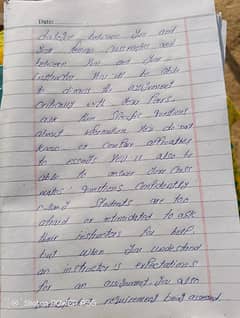 Date:
dialogue between you and
your fellow classmates and
between you and your
instructor. You will be able
to discuss the assignment
critically with your Peers,
ask them specific questions
about information you do not
know or
to essents You ll also be
able to answer your class
mates' questions confidently
Students are too
afraid or intimidated to ask
their instructors for help
but when you understand
an instructor is expectations
for an assignment you also
requirement being assessed.